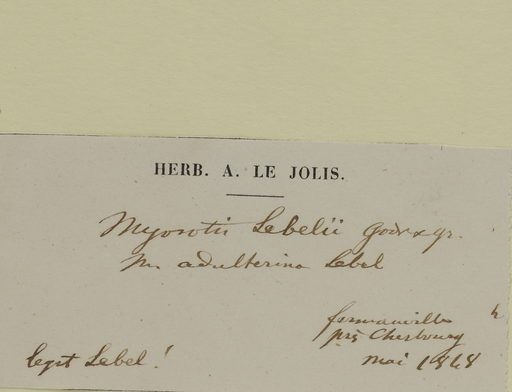 HERB. A. LE JOLIS.
Myosotis Lebelii Godr & gr.
M. adulterina Lebel
fermanville
près Cherbourg
legit Lebel!
mai 1848